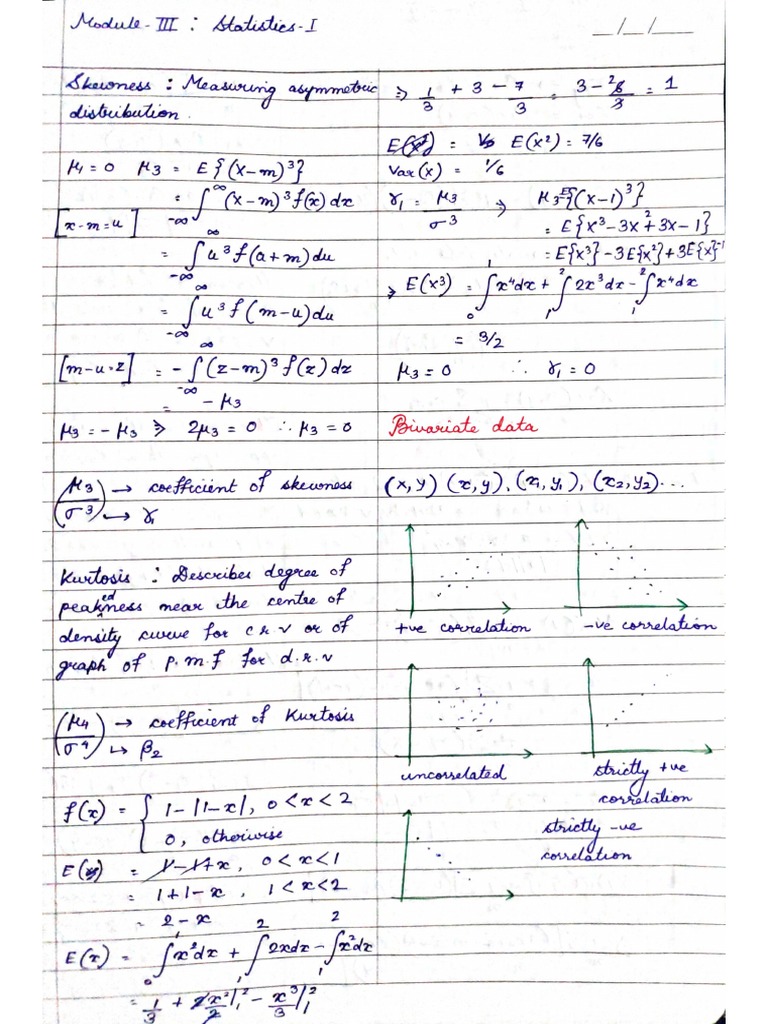 Module-III : Statistics-I
__/__/___
Skewness : Measuring asymmetric
distribution.
μ₁ = 0 μ₃ = E{(x-m)³}
= ∫_{-∞}^{∞} (x-m)³ f(x) dx
[x-m=u]
= ∫_{-∞} u³ f(u+m) du
= ∫_{-∞}^{∞} u³ f(m-u) du
[m-u=z] = -∫_{-∞}^{∞} (z-m)³ f(z) dz
= -μ₃
μ₃ = -μ₃ ⇒ 2μ₃ = 0 ∴ μ₃ = 0
(μ₃/σ³) → coefficient of skewness
↳ γ₁
Kurtosis : Describes degree of
peakedness near the centre of
density curve for c.r.v or of
graph of p.m.f for d.r.v
(μ₄/σ⁴) → coefficient of Kurtosis
↳ β₂
f(x) = { 1-|1-x|, 0<x<2
0, otherwise
E(x) = 1-1+x, 0<x<1
= 1+1-x, 1<x<2
= 2-x
E(x) = ∫₀¹ x²dx + ∫₁² 2xdx - ∫₁² x²dx
= 1/3 + 2x²/2 |₁² - x³/3 |₁²
⇒ 1/3 + 3 - 7/3 = 3 - 6/3 = 1
E(x²) = 7/6
Var(x) = 1/6
γ₁ = μ₃/σ³ ⇒ μ₃ = E{(x-1)³}
= E{x³-3x²+3x-1}
= E{x³}-3E{x²}+3E{x}-1
⇒ E(x³) = ∫₀¹ x⁴dx + ∫₁² 2x³dx - ∫₁² x⁴dx
= 3/2
μ₃ = 0 ∴ γ₁ = 0
Bivariate data
(x,y) (x,y), (x₁,y₁), (x₂,y₂)...
+ve correlation
-ve correlation
uncorrelated
strictly +ve
correlation
strictly -ve
correlation